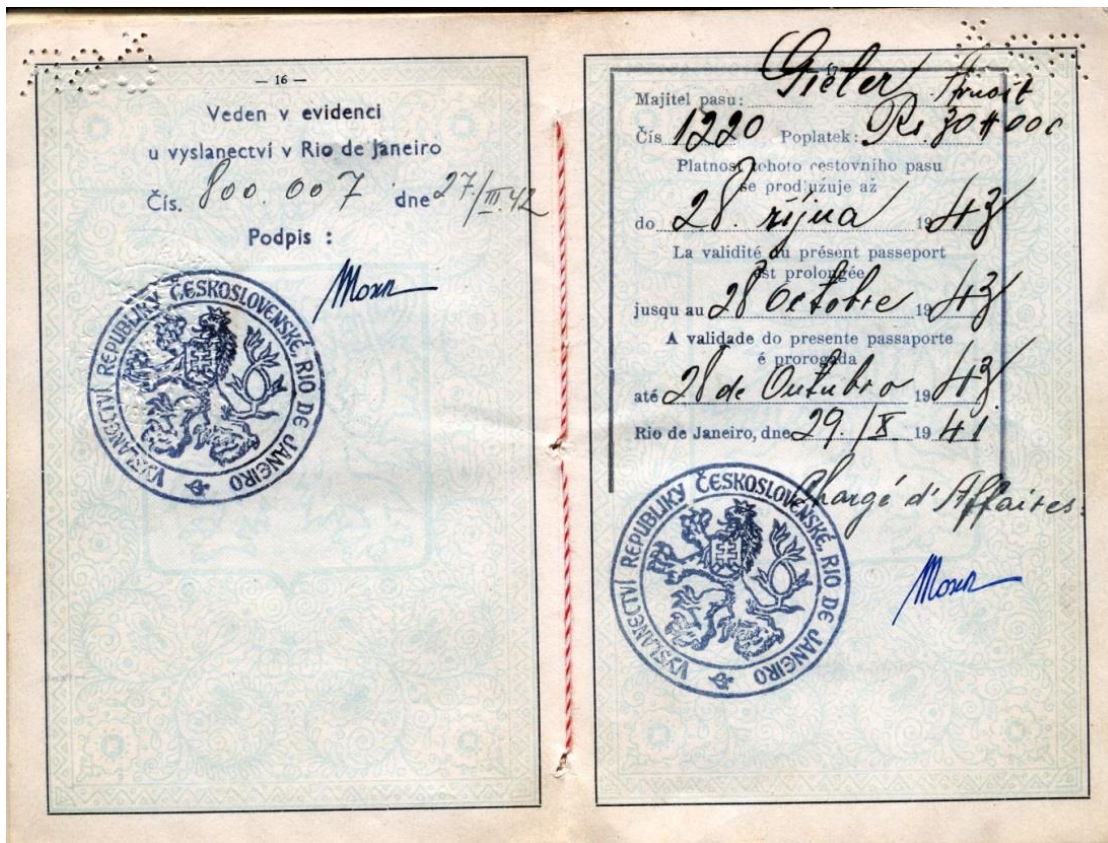 — 16 —
Veden v evidenci
u vyslanectví v Rio de Janeiro
Čís. 800.007 dne 27./III.42
Podpis :
VYSLANECTVÍ REPUBLIKY ČESKOSLOVENSKÉ, RIO DE JANEIRO
Majitel pasu:
Čís 1220 Poplatek: Rs. 30 000
Platnost tohoto cestovního pasu
se prodlužuje až
do 28. října 1943
La validité du présent passeport
est prolongée
jusqu au 28 Octobre 1943
A validade do presente passaporte
é prorogada
até 28 de Outubro 1943
Rio de Janeiro, dne 29./X. 1941
Chargé d'Affaires:
VYSLANECTVÍ REPUBLIKY ČESKOSLOVENSKÉ, RIO DE JANEIRO